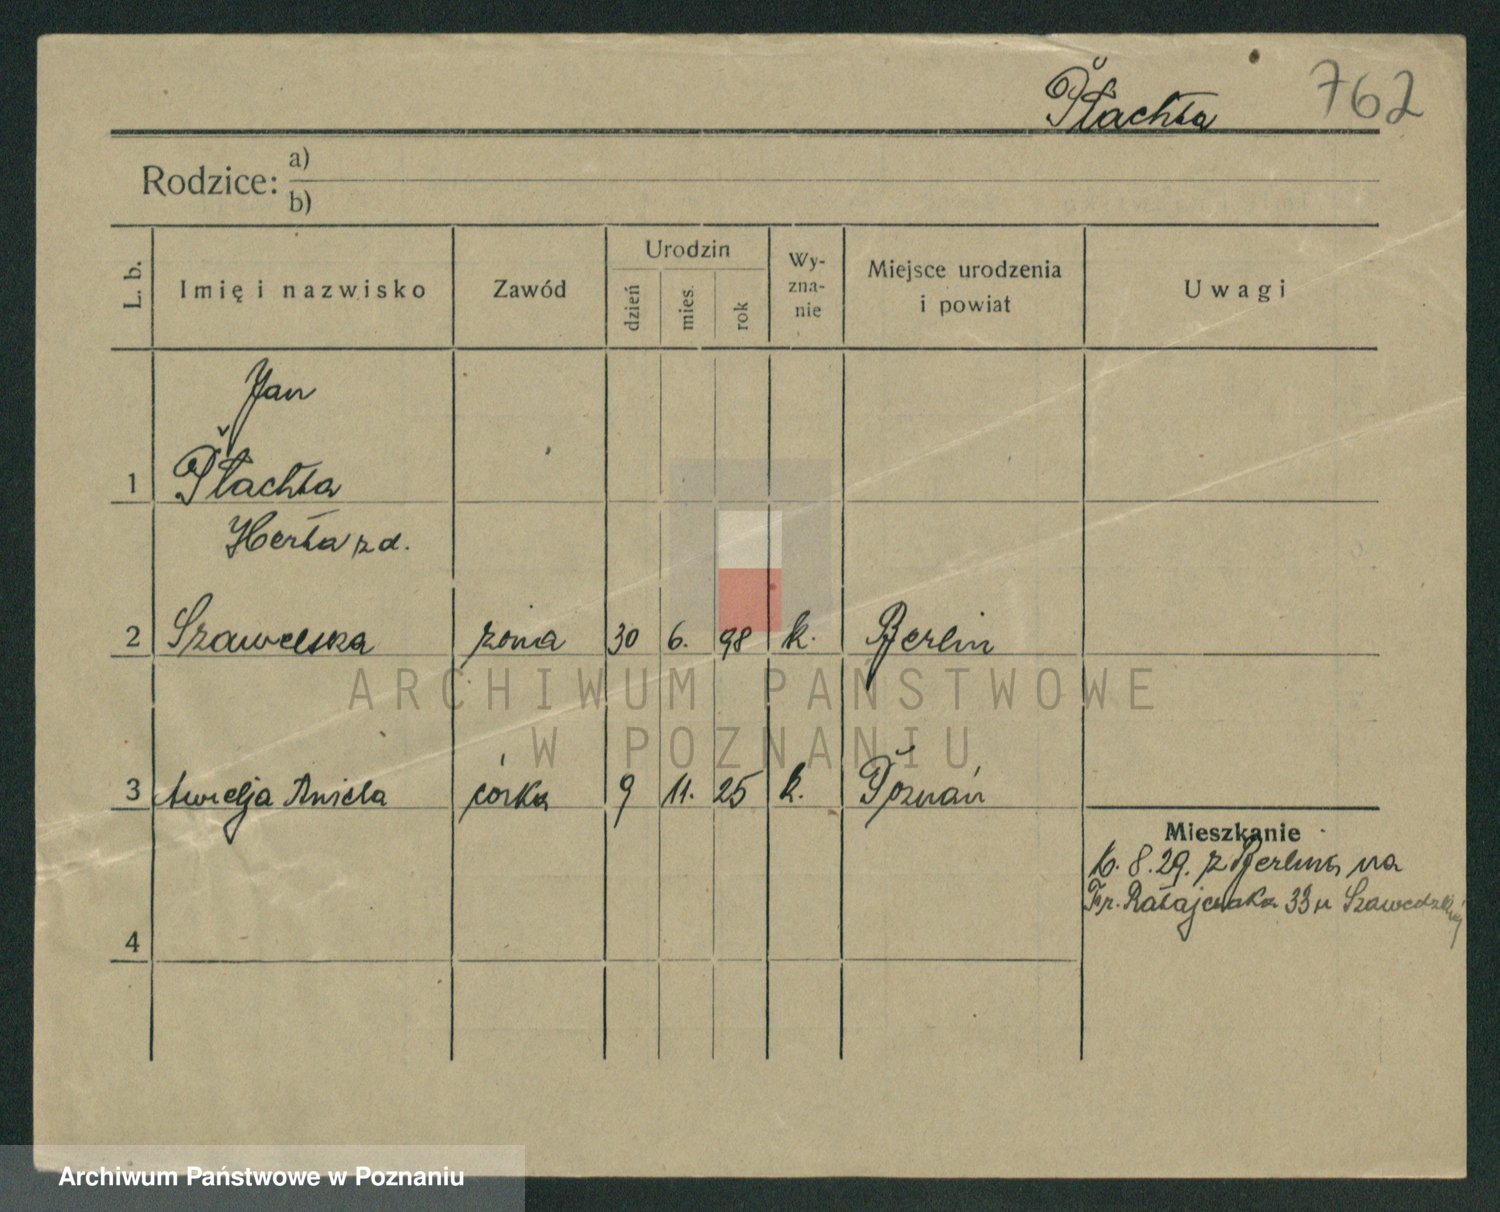 Płachta 762
Rodzice: a)
b)
L. b.
Imię i nazwisko
Zawód
Urodzin
dzień
mies.
rok
Wy-
zna-
nie
Miejsce urodzenia
i powiat
Uwagi
Jan
1 Płachta
Herta z d.
2 Szawelska żona 30 6. 98 k. Berlin
3 Aurelja Aniela córka 9 11. 25 k. Poznań
Mieszkanie
16. 8. 29. z Berlina na
Fr. Ratajczaka 33 u
4
ARCHIWUM PAŃSTWOWE
W POZNANIU
Archiwum Państwowe w Poznaniu